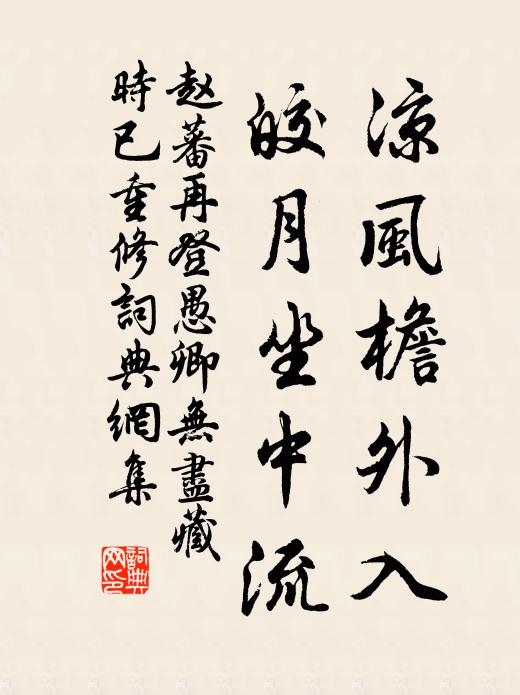 涼風檐外入
皎月坐中流
赵蕃再登愚卿無盡藏
時已重修詞典網集
詞典网印